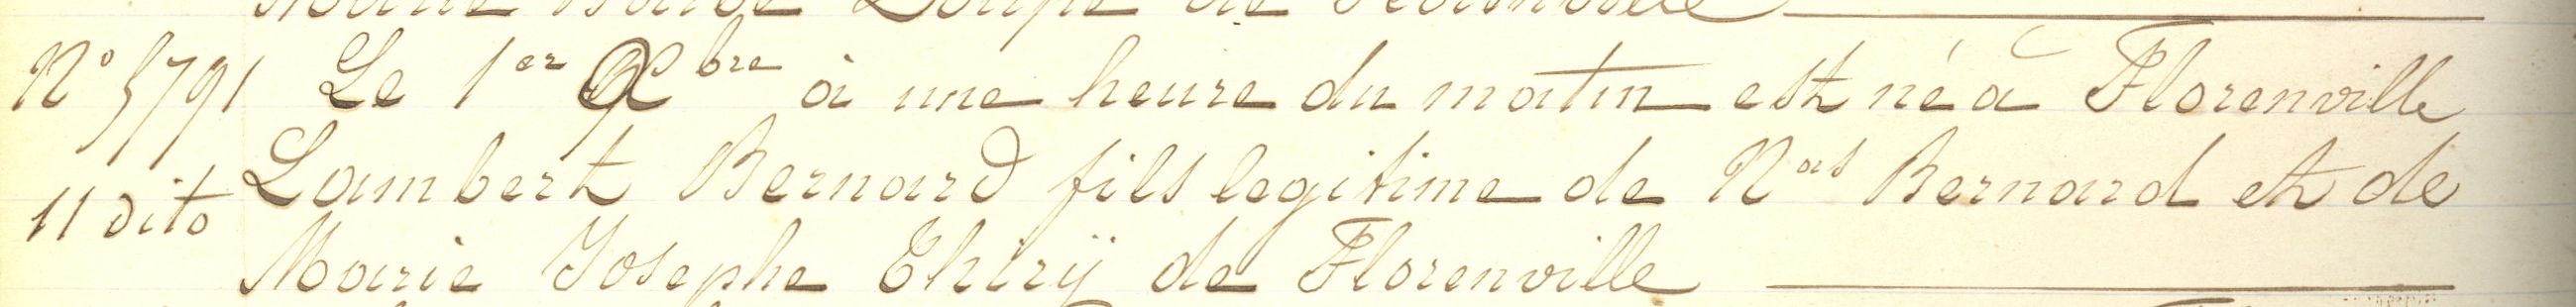 N° 5791 Le 1er à une heure du matin est né à Florenville
Lambert Bernard fils legitime de Nas Bernard et de
11 dito
Marie Josephe Thirÿ de Florenville